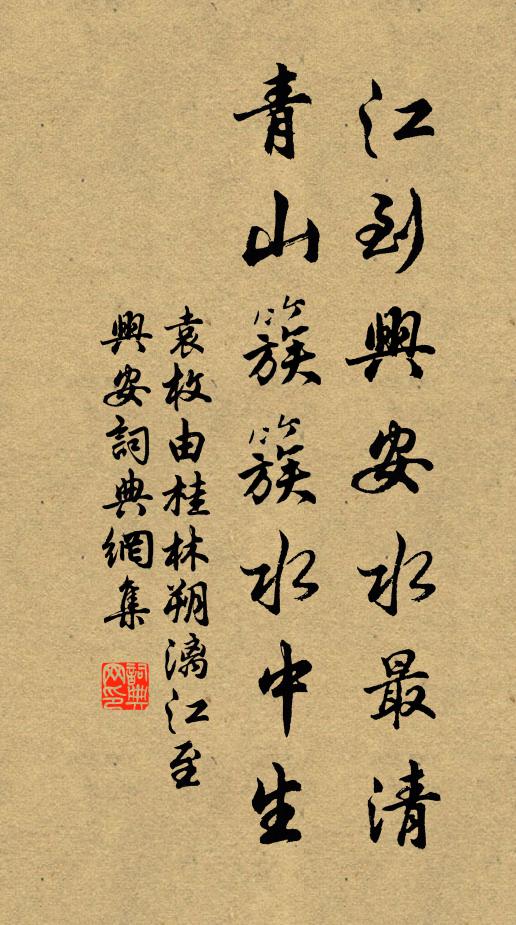 江到興安水最清
青山簇簇水中生
袁枚由桂林朔漓江至
興安詞典網集
詞典
网印